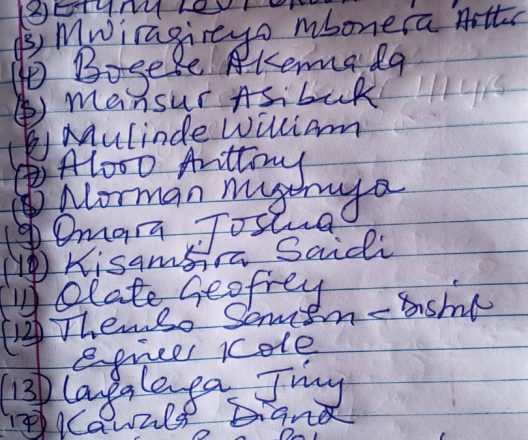 (3) Mwiragireyo Mbonera Arthur
(4) Bogere Akennada
(5) Mansur Asibuk
(6) Mulinde William
(7) Aloro Anttony
(8) Norman Mugumya
(9) Omara Joshua
(10) Kisambira Saidi
(11) Olate Geofrey
(12) Thembo - District
Engineer Kole
(13) Layalenga Jimy
(14) Kawala Diana